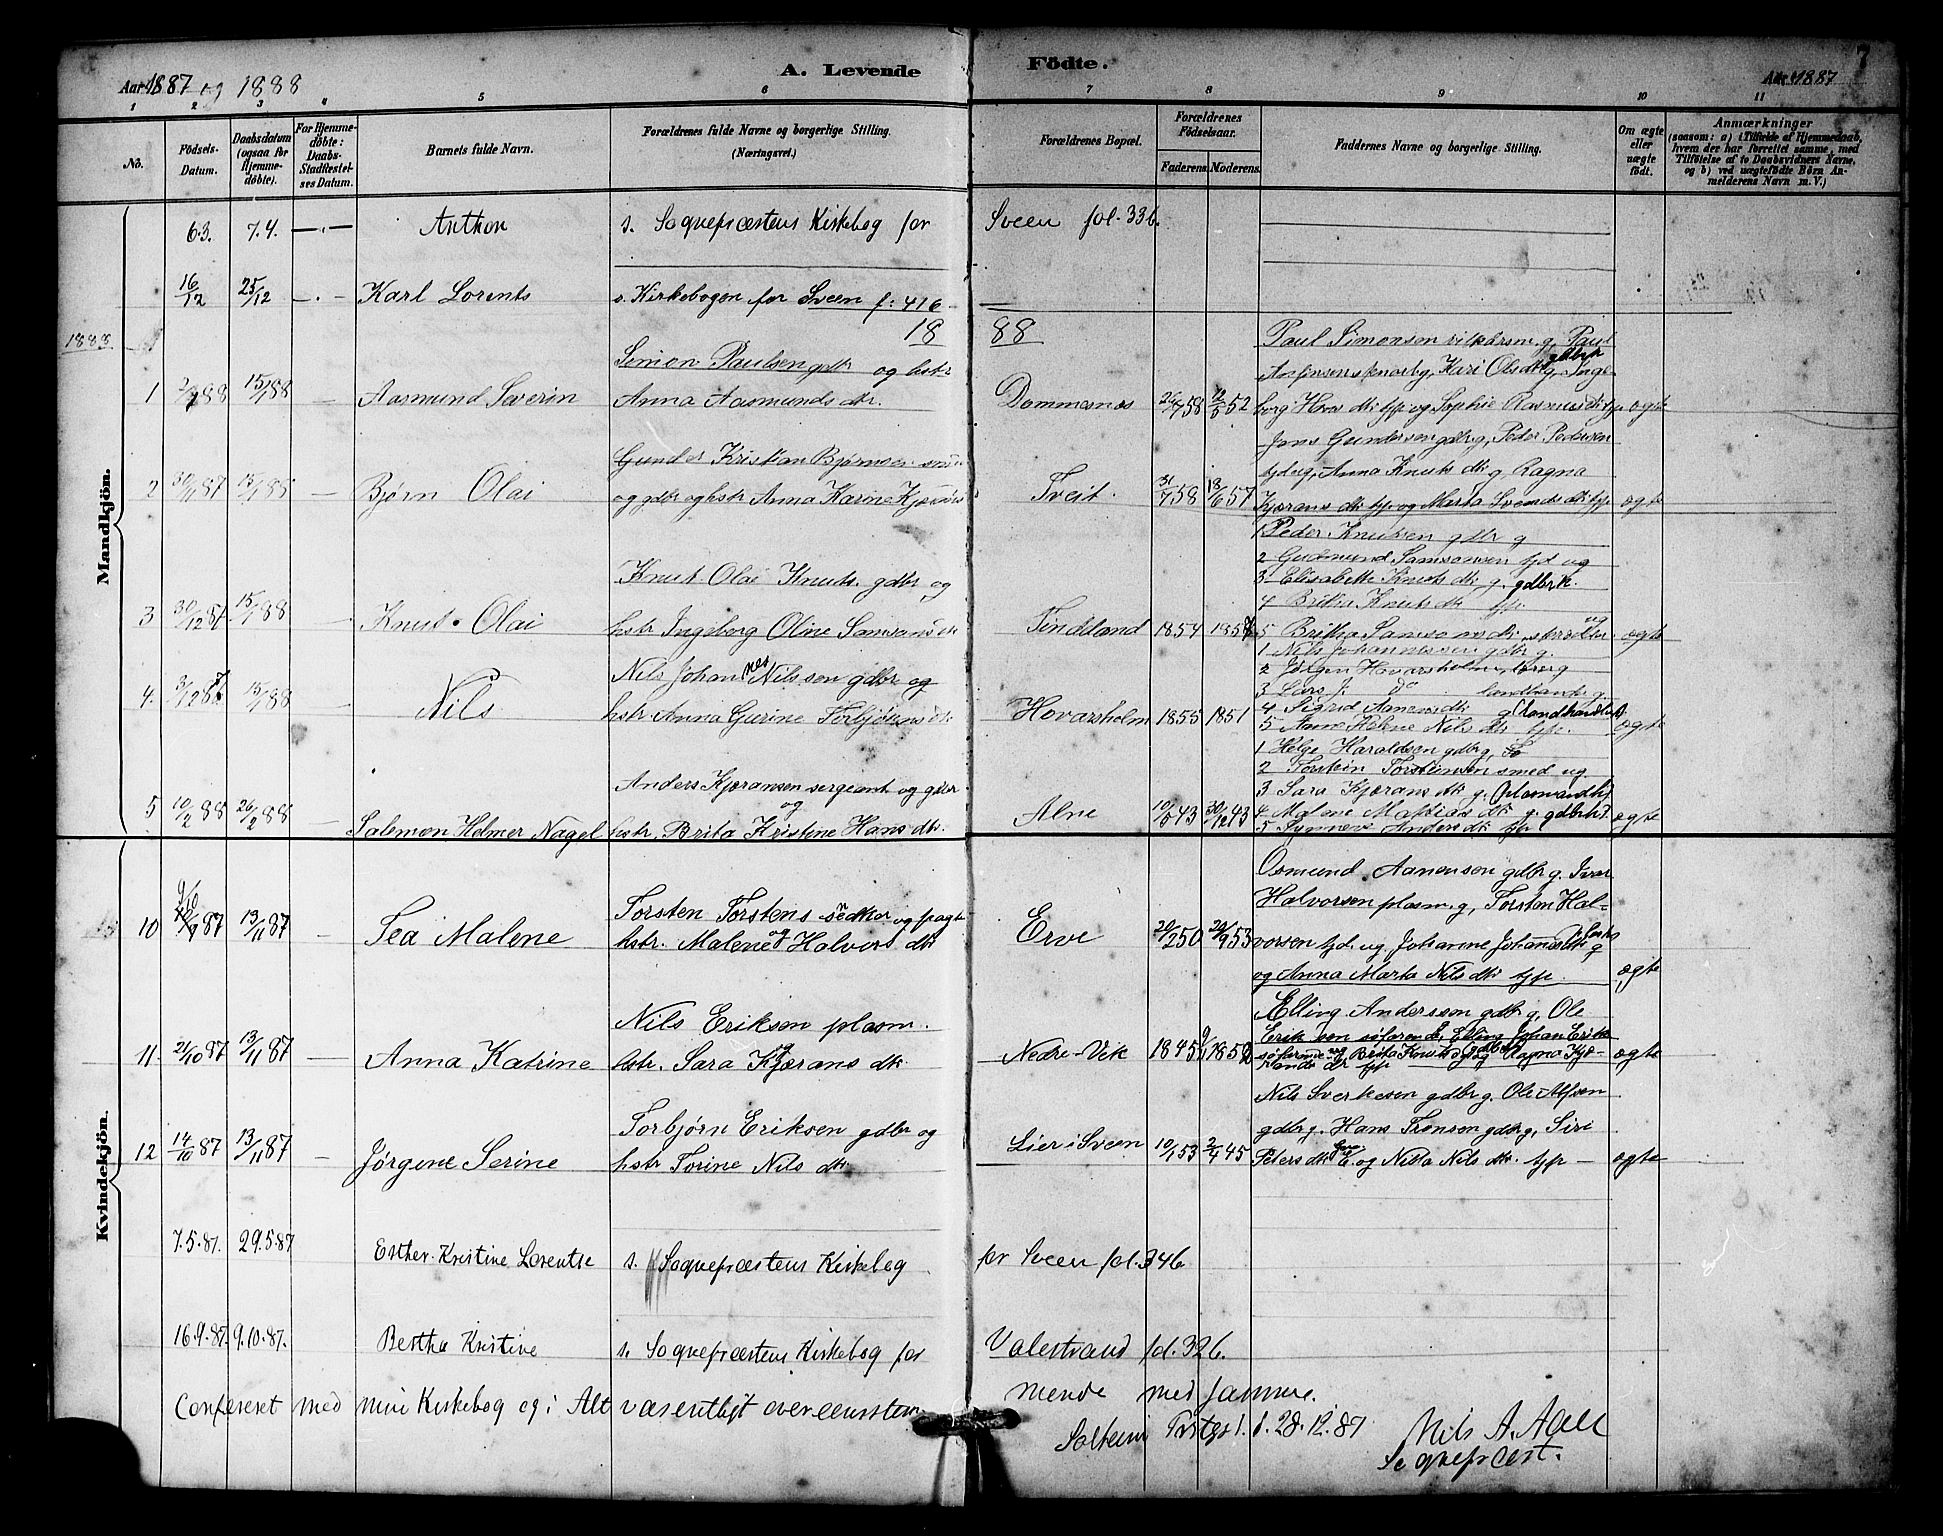 Aar 1887 og 1888
A. Levende Födte.
Aar 1887
7
1 2 3 4 5 6 7 8 9 10 11
No.
Födsels-Datum.
Daabsdatum (ogsaa for Hjemme-döbte).
For Hjemme-döbte: Daabs-Stadfæstel-ses Datum.
Barnets fulde Navn.
Forældrenes fulde Navne og borgerlige Stilling. (Næringsvei.)
Forældrenes Bopæl.
Forældrenes Födselsaar.
Faderens. Moderens.
Faddernes Navne og borgerlige Stilling.
Om ægte eller uægte födt.
Anmærkninger
(saasom: a) i Tilfælde af Hjemmedaab, hvem der har forrettet samme, med Tilföielse af to Daabsvidners Navne, og b) ved uægtefödte Börn An-melderens Navn m. V.)
Mandkjön.
6.3. 7.4. Anthon s. Sognepræstens Kirkebog for Sveen fol. 336.
16/12 25/12 Karl Lorents s. Kirkebogen for Sveen f: 416
1888
18 88
Paul Simonsen g, Paul
Simon Paulsen gdbr og hstr
Kari Olsdtr g, Inge-
1 88 15/1 88 Aasmund Severin Anna Aasmunds dtr. Dommesnes 26/7 58 12/5 52 borg Hans dtr tjp og Sophie Rasmusdtr ægte
Jens Gundersen gdbr g, Peder Pedersen
Gunder Kristian Bjørnsen
Anna Knuts dtr g Ragna
2 30/11 87 15/1 88 Bjørn Olai og gdbr og hstr Anna Karine Tveit. 31/7 58 18/6 57 Kjærans dtr tjp og Marta Svends dtr tjp ægte
1 Peder Knutsen gdbr g
2 Gudmund Samsonsen tjd ug
Knut Olai Knuts. gdbr og
3 Elisabeth Knuts dtr g. gdbrk.
4 Brita Knuts dtr tjp.
3 30/12 87 15/1 88 Knut Olai hstr Ingeborg Oline Samsons dtr Tindeland 1854 5 Britha Samsons dtr ug ægte
1 Nils Johannessen gdbr g.
Nils Johannes Nilsson gdbr og
2 Jørgen Hovarsholm
3 Lars J. do landhandl g
4. 15/1 88 Nils hstr Anna Gurine Torbjørns dtr Hovarsholm 1855 1851 4 Sigrid Aanens dtr g (landhandl.)
5 Anne Helene Nils dtr tjp. ægte
1 Helge Haraldsen gdbr g,
2 Torstein Torsteinsen smed ug
Anders Kjæransen sergeant og gdbr
3 Sara Kjærans dtr g.
og
5 10/2 88 26/2 88 Salemon Helmer Nagel hstr. Brita Kristine Hans dtr. Alne 10/5 43 30/12 43 4 Malene Matias dtr g. gdbrk. ægte
5 Synneve Anders dtr tjp
Kvindekjön.
Osmund Aanensen gdbr g. Ivar
Halvorsen plasm. g, Torsten Hal-
10 87 13/11 87 Tea Malene Torsten Torstens snedker og
hstr. Malene Halvors dtr Erve 20/2 50 53 vorsen tjd. ug, Johanne Johannes dtr g
og Anna Marta Nils dtr tjp. ægte
Elling Andersson gdbr g, Ole
Nils Eriksen plasm.
og
Eriksen söfarende g, Elling Johan Eriks
11. 21/10 87 13/11 87 Anna Katrine hstr. Sara Kjærans dtr Nedre-Vik 1845 söfarende ug Brita Knutsdtr g Ragna Kjæ-
rands dtr tjp ægte
Nils Sverkesen gdbr g. Ole Alfsen
Torbjørn Eriksen gdbr og
gdbr g. Hans Tronsen gdbr g, Siri
12 14/10 87 13/11 87 Jörgene Serine hstr Torine Nils dtr Lier i Sveen 10/1 53 2/4 45 Peters dtr og Nilla Nils dtr. tjp ægte
7.5.87. 29.5.87 Esther Kristine Lorentse s. Sognepræstens Kirkebog for Sveen fol. 346
16.9.87. 9.10.87. Bertha Kristine s. Sognepræstens Kirkebog for Valestrand fol. 326.
Confereret med min Kirkebog og i Alt væsentligt overeensstem-mende med samme.
28.12.87 Nils A. Aall
Sognepræst.